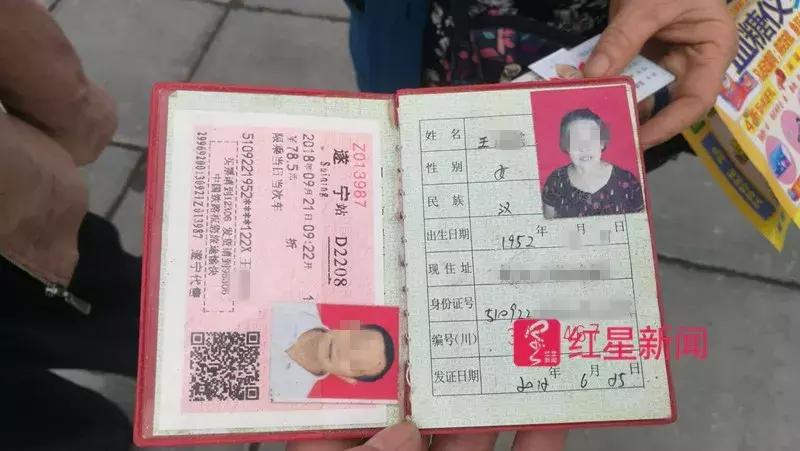 Z013987
遂宁站 D2208
Suining
2018年09月21日09:22开
¥78.5元 折
限乘当日当次车
5109221952****122X王
买票请到12306 发货请到95306
中国铁路祝您旅途愉快
29969200130921Z013987 遂宁代售
姓名 王
性别 女
民族 汉
出生日期 1952 年 月 日
现住址
身份证号 510922
编号(川)
发证日期 2012 年 6 月 25 日
红星新闻
血糖仪